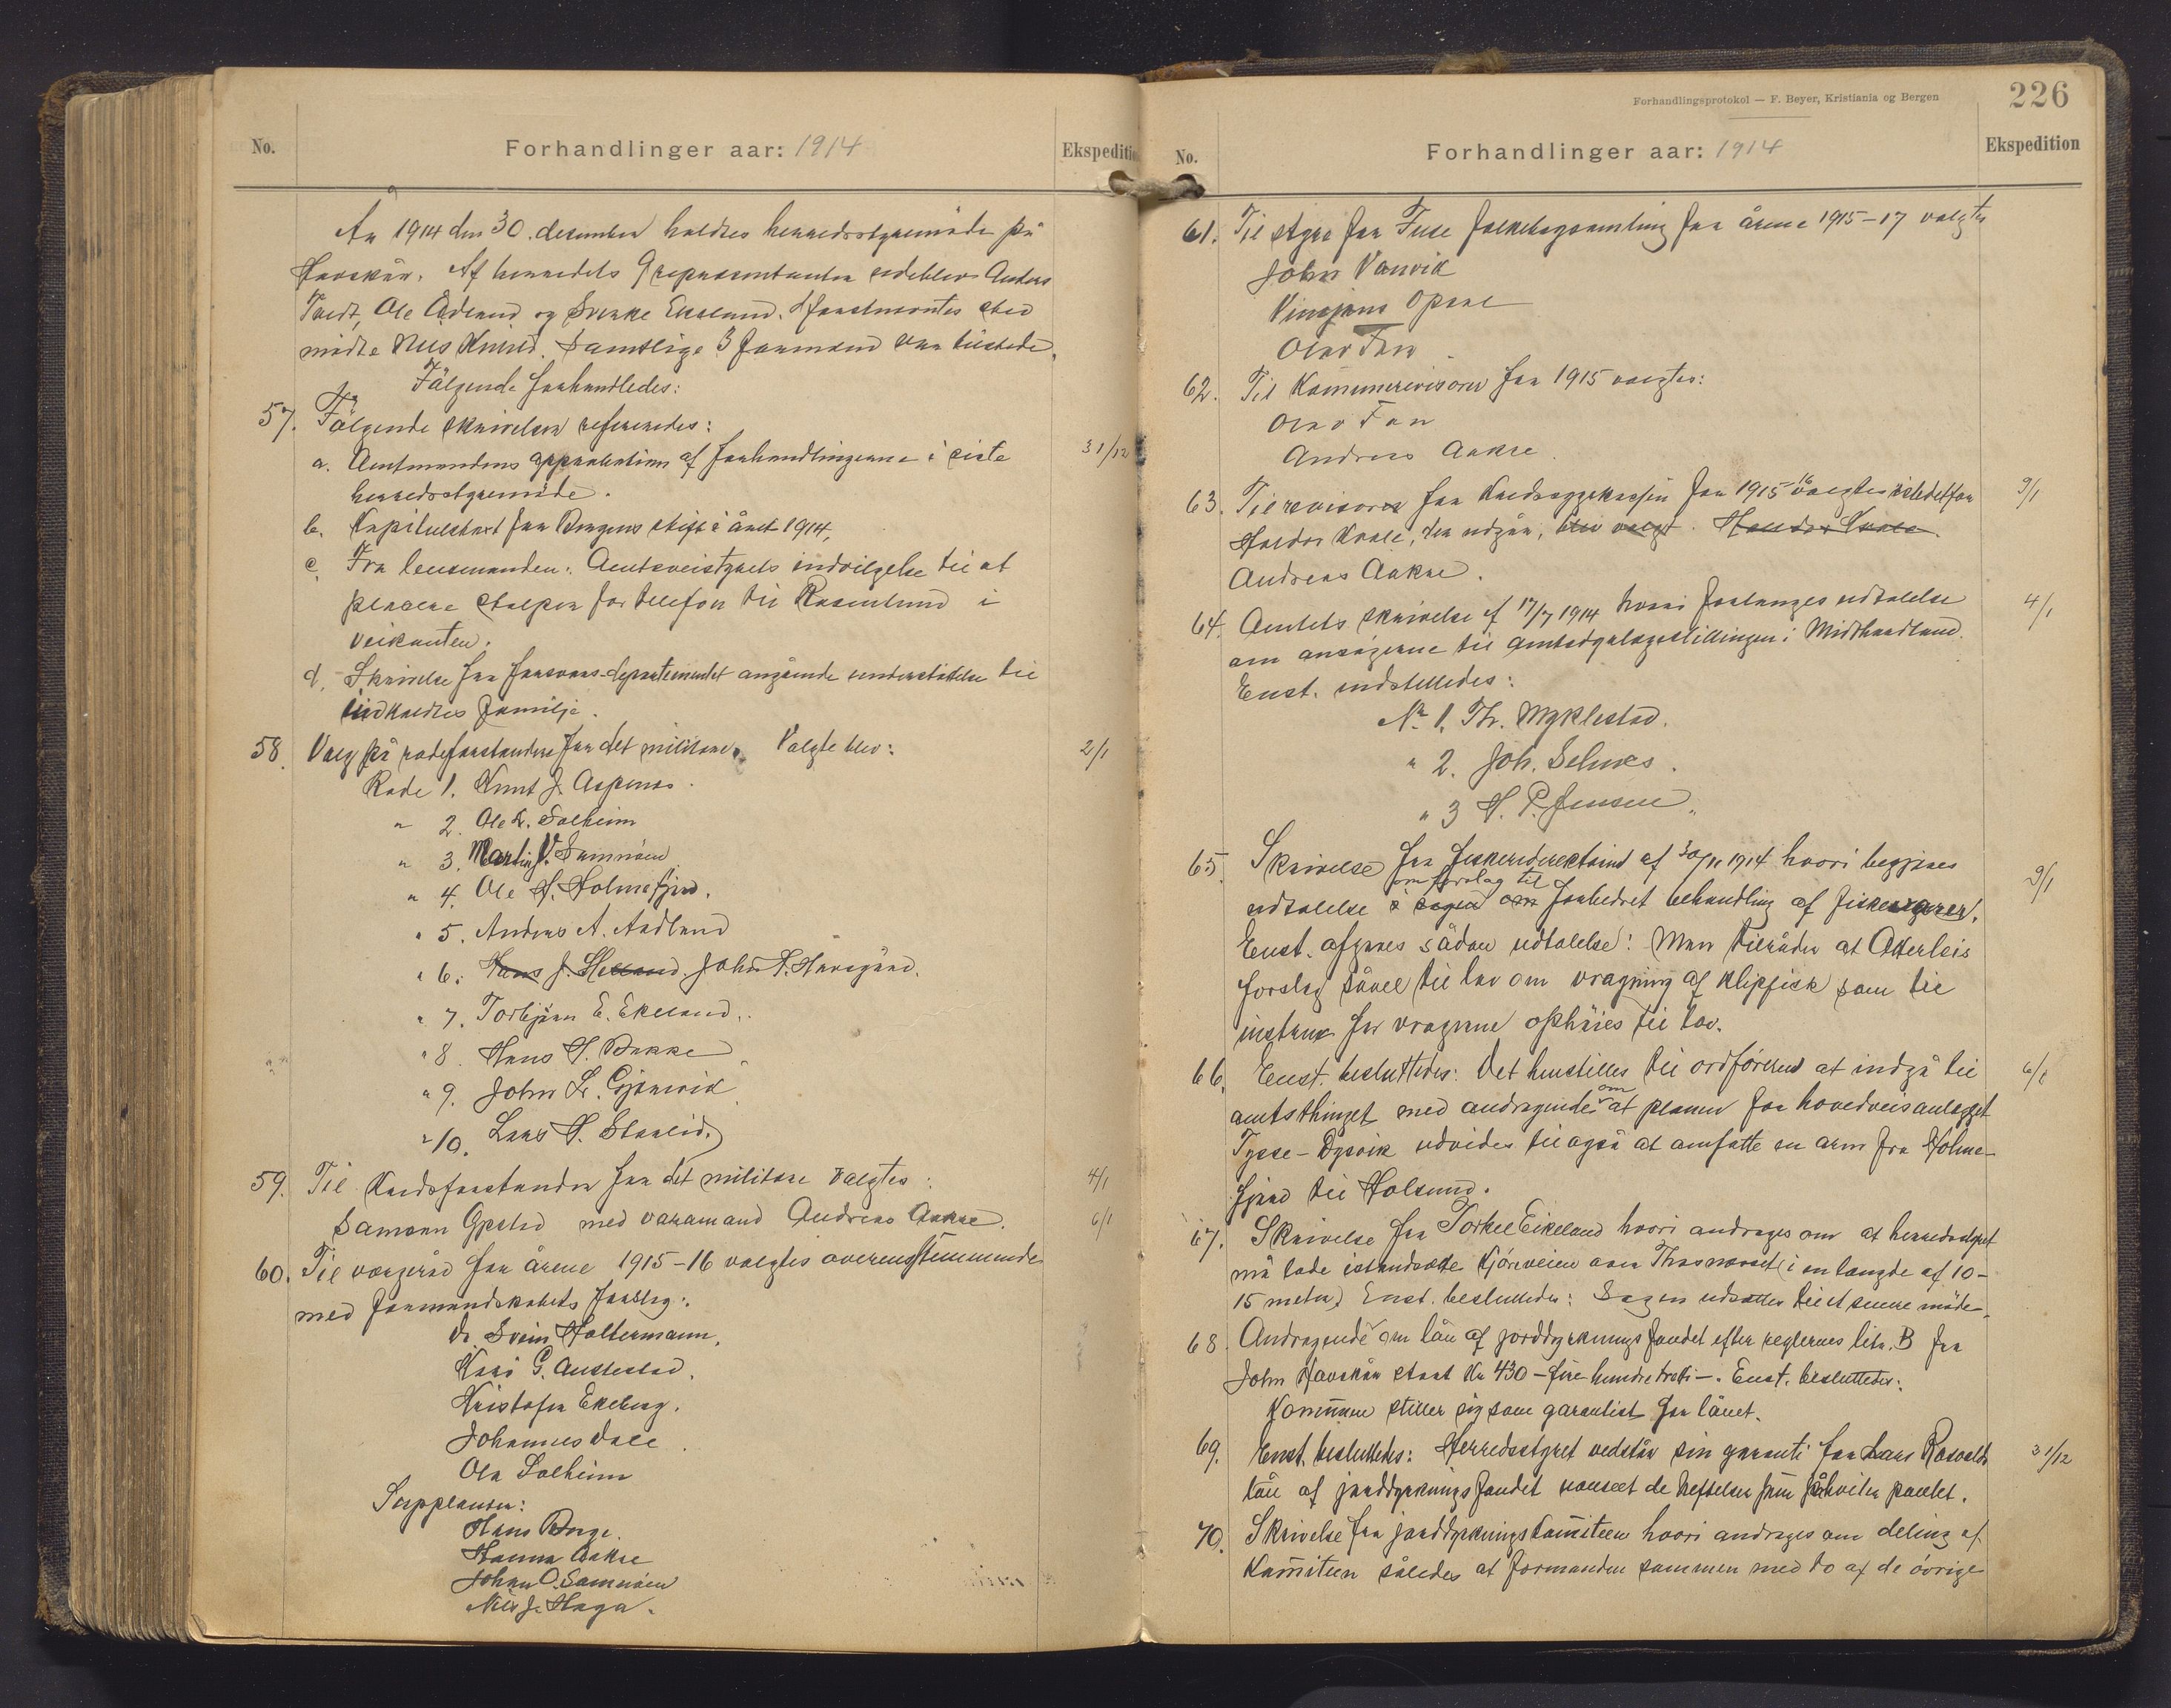 No.
Forhandlinger aar: 1914
Ekspedition
År 1914 den 30. desember holdtes herredsstyremøde på
Havskår. Af herredets 9 repræsentanter udeblev Anders
Tvedt, Ole Ådland og Brynke Eikeland. I førstnevntes sted
mødte Nils Kvind. Samtlige 3 formænd var tilstede.
Følgende forhandledes:
57. Følgende skrivelser refereredes:
a. Amtmandens approbation af forhandlingerne i siste
herredsstyremøde.
31/12
b. Kapitulstakst for Bergens stift i året 1914.
c. Fra lensmanden: Amtsveistyrets indvilgelse til at
placere stolper for telefon til Rosenlund i
veikanten.
d. Skrivelse fra forsvars-departementet angående understøttelse til
indkaldtes familje.
58. Valg på rodeforstandere for det militære. Valgte blev:
2/1
Rode 1. Knut J. Aspenes.
" 2. Ole L. Solheim
" 3. Martin V. Samnøen
" 4. Ole H. Holmefjord.
" 5. Anders A. Aadland
" 6. Hans J. Helland. John P. Håvegård.
" 7. Torbjørn E. Ekeland.
" 8. Hans H. Bakke
" 9. John L. Gjønvik
" 10. Lars H. Skareid.
59. Til Kredsforstander for det militære valgtes:
4/1
Samson Gjøsted med varamand Andreas Aakre.
6/1
60. Til vergeråd for årene 1915-16 valgtes overensstemmende
med formandskabets forslag:
dr. Svein Holtermann.
Kari G. Austestad.
Kristofer Ekeberg.
Johannes Dale.
Ola Solheim
Supplanter:
Hans Berge.
Hanna Aakre
Johan O. Samnøen
Nils J. Haga.
Forhandlingsprotokol — F. Beyer, Kristiania og Bergen
226
No.
Forhandlinger aar: 1914
Ekspedition
61. Til styre for Fuse folkebogsamling for årene 1915-17 valgtes
John Vanvik
Vinsjans Opsal
Olav Tin
62. Til Kommunerevisorer for 1915 valgtes:
Olav Tin
Andreas Aakre.
63. Til revisorer for Kredssygekassen for 1915 valgtes istedetfor
9/1
Haldor Kvale, der udgår, blev valgt. Haldor Kvale.
Andreas Aakre.
64. Amtets skrivelse af 17/7 1914 hvori forlanges udtalelse
4/1
om ansøgerne til amtsdyrlægestillingen i Midthordland.
Enst. indstilledes:
Nr 1. Th. Myklestad.
" 2. Joh. Selnes.
" 3 H. P. Jensen.
65. Skrivelse fra fiskeridirektøren af 30/11 1914 hvori begjæres
9/1
om forslag til
udtalelse i sagen om forbedret behandling af fiskevarer.
Enst. afgaves sådan udtalelse: Man tilråder at Atterleis
forslag såvel til lov om vragning af klipfisk som til
instrux for vragerne ophøies til lov.
66. Enst. besluttedes: Det henstilles til ordføreren at indgå til
6/1
amtsthinget med andragende om at planen for hovedveisanlægget
Tysse-Dysvik udvides til også at omfatte en arm fra Holme-
fjord til Holsund.
67. Skrivelse fra Torkel Eikeland hvori andrages om at herredsstyret
må lade istandsætte Kjøreveien over Thrasnæset (i en længde af 10-
15 meter). Enst. besluttedes: Sagen udsættes til et senere møde.
68. Andragende om lån af jorddyrkningsfondet efter reglernes litr. B fra
John Havskår stort Kr 430 - fire hundre tretti -. Enst. besluttedes:
Kommunen stiller sig som garantist for lånet.
69. Enst. besluttedes: Herredsstyret vedstår sin garanti for Lars Rosvolds
31/12
lån af jorddyrkningsfondet uanseet de heftelser som påhviler pantet.
70. Skrivelse fra jorddyrkningskomiteen hvori andrages om deling af
Komiteen således at formanden sammen med to af de øvrige